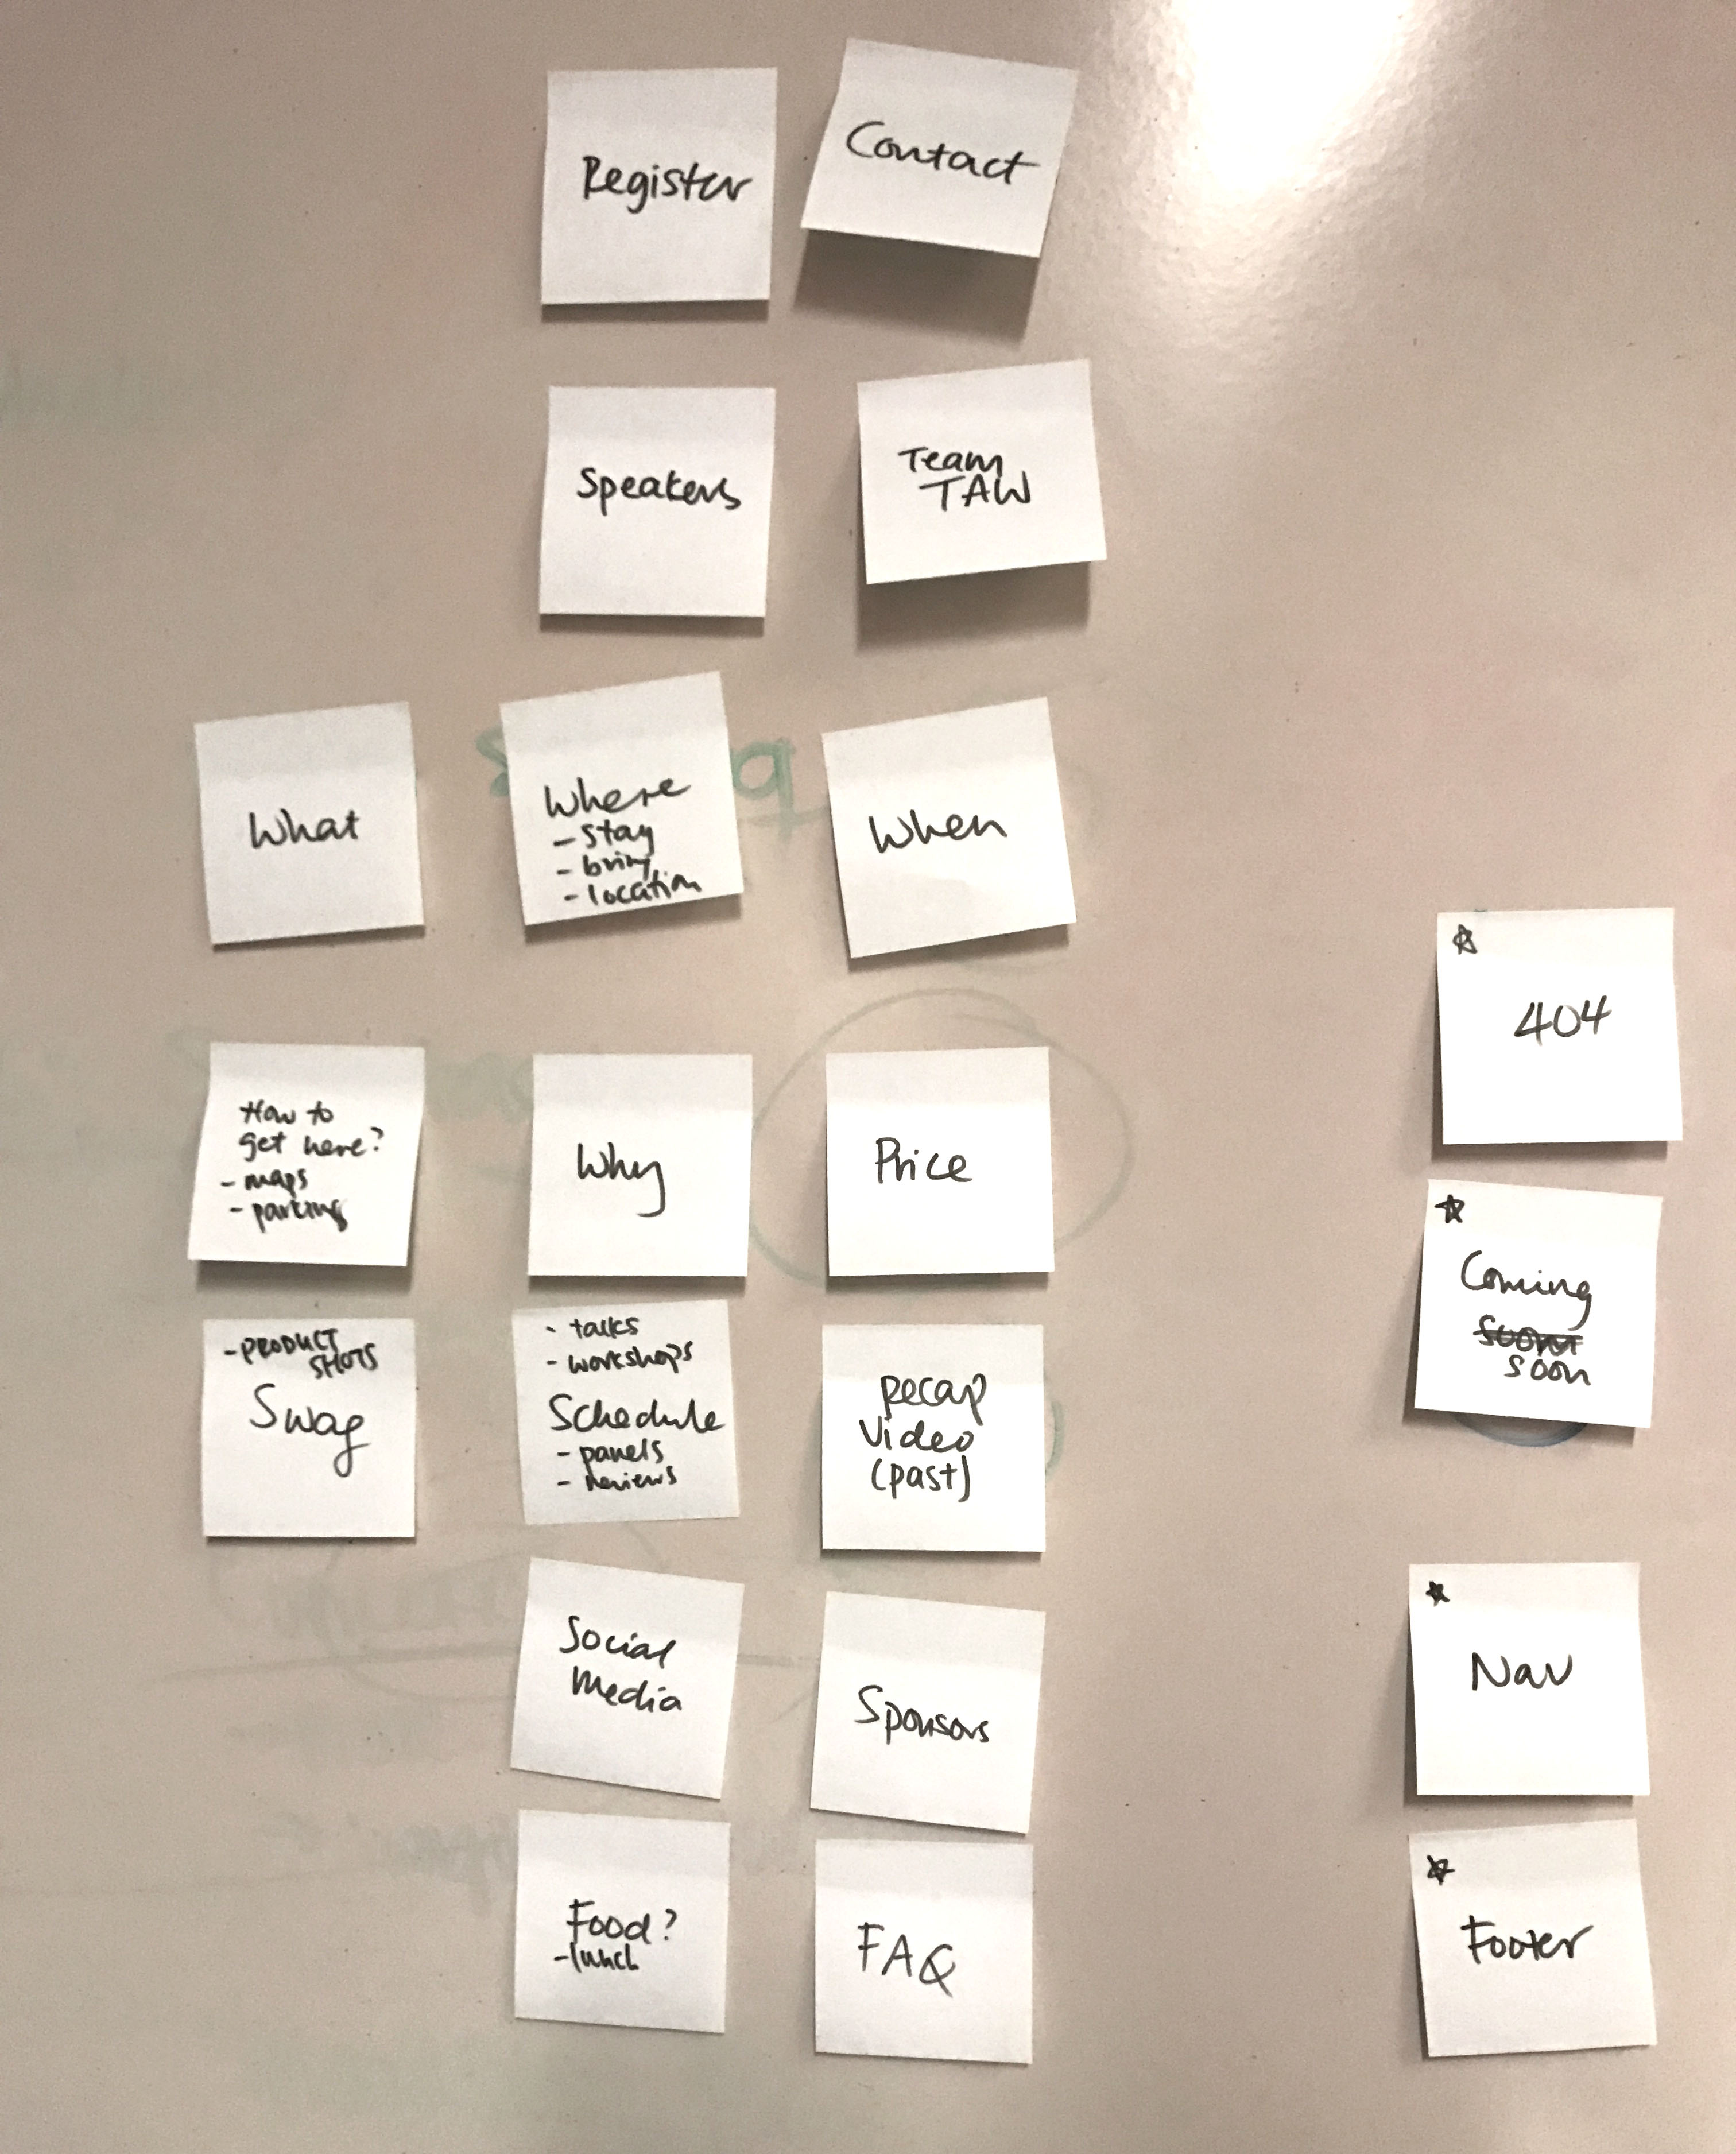 Register
Contact
Speakers
Team
TAW
What
Where
- stay
- bring
- location
When
How to
get here?
- maps
- parking
Why
Price
- PRODUCT
SHOTS
Swag
- talks
- workshops
Schedule
- panels
- reviews
Recap
Video
(past)
Social
Media
Sponsors
Food?
- lunch
FAQ
404
Coming
soon
Nav
Footer